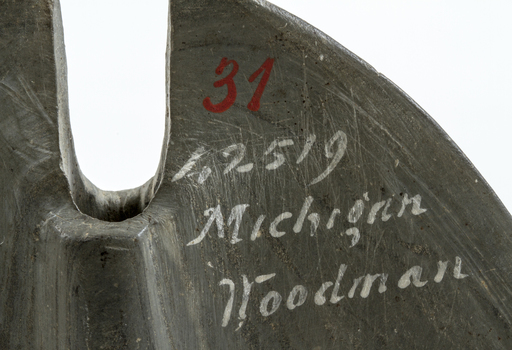 31
42519
Michigan
Woodman